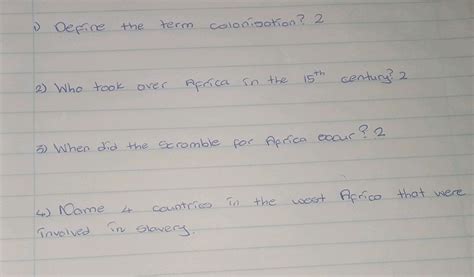 1) Define the term colonization? 2
2) Who took over Africa in the 15th century? 2
3) When did the scramble for Africa occur? 2
4) Name 4 countries in the west Africa that were
involved in slavery.